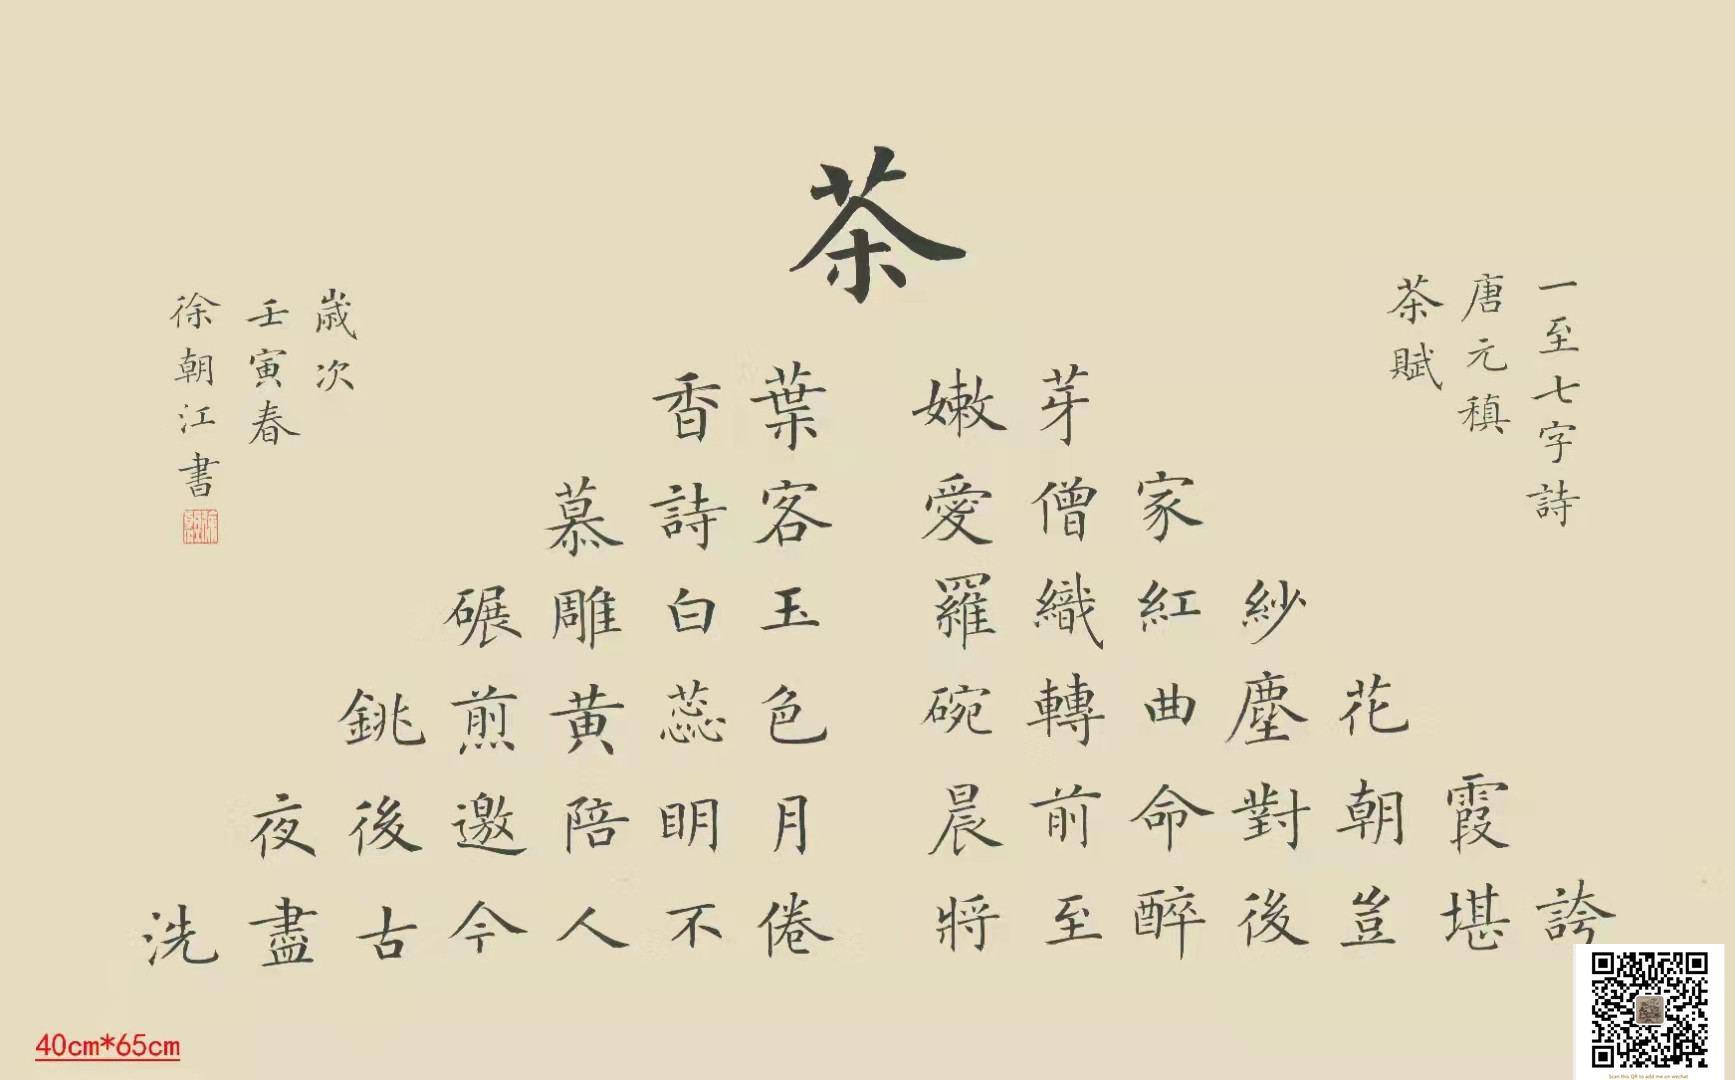 茶
香葉 嫩芽
慕詩客 愛僧家
碾雕白玉 羅織紅紗
銚煎黄蕊色 碗轉曲塵花
夜後邀陪眀月 晨前命對朝霞
洗盡古今人不倦 將至醉後豈堪誇
一至七字詩
唐元稹
茶賦
歳次
壬寅春
徐朝江書
40cm*65cm
Scan this QR to add me on wechat